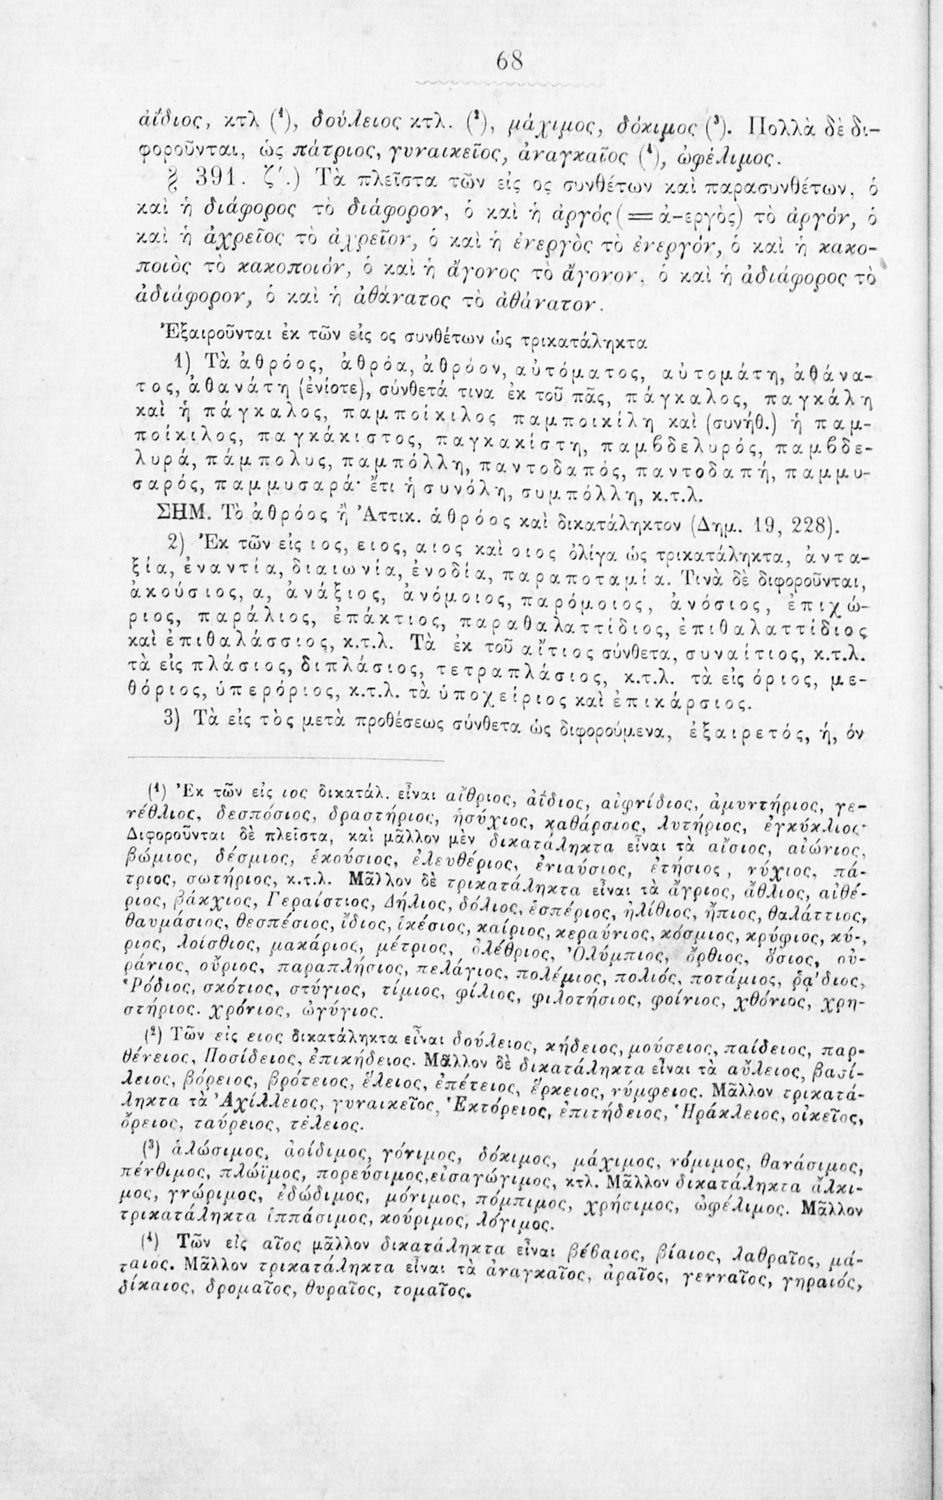 68
ἀΐδιος, κτλ (¹), δούλειος κτλ. (²), μάχιμος, δόκιμος (³). Πολλὰ δὲ δι-
φοροῦνται, ὡς πάτριος, γυναικεῖος, ἀναγκαῖος (⁴), ὠφέλιμος.
§ 391. ζ΄.) Τὰ πλεῖστα τῶν εἰς ος συνθέτων καὶ παρασυνθέτων, ὁ
καὶ ἡ διάφορος τὸ διάφορον, ὁ καὶ ἡ ἀργός (= ἀ-εργὸς) τὸ ἀργόν, ὁ
καὶ ἡ ἀχρεῖος τὸ ἀχρεῖον, ὁ καὶ ἡ ἐνεργὸς τὸ ἐνεργόν, ὁ καὶ ἡ κακο-
ποιὸς τὸ κακοποιόν, ὁ καὶ ἡ ἄγονος τὸ ἄγονον, ὁ καὶ ἡ ἀδιάφορος τὸ
ἀδιάφορον, ὁ καὶ ἡ ἀθάνατος τὸ ἀθάνατον.
Ἐξαιροῦνται ἐκ τῶν εἰς ος συνθέτων ὡς τρικατάληκτα
1) Τὰ ἀθρόος, ἀθρόα, ἀθρόον, αὐτόματος, αὐτομάτη, ἀθάνα-
τος, ἀθανάτη (ἐνίοτε), σύνθετά τινα ἐκ τοῦ πᾶς, πάγκαλος, παγκάλη
καὶ ἡ πάγκαλος, παμποίκιλος παμποικίλη καὶ (συνήθ.) ἡ παμ-
ποίκιλος, παγκάκιστος, παγκακίστη, παμβδελυρός, παμβδε-
λυρά, πάμπολυς, παμπόλλη, παντοδαπός, παντοδαπή, παμμυ-
σαρός, παμμυσαρά· ἔτι ἡ συνόλη, συμπόλλη, κ.τ.λ.
ΣΗΜ. Τὸ ἀθρόος ἢ Ἀττικ. ἁθρόος καὶ δικατάληκτον (Δημ. 19, 228).
2) Ἐκ τῶν εἰς ιος, ειος, αιος καὶ οιος ὀλίγα ὡς τρικατάληκτα, ἀντα-
ξία, ἐναντία, διαιωνία, ἐνοδία, παραποταμία. Τινὰ δὲ διφοροῦνται,
ἀκούσιος, α, ἀνάξιος, ἀνόμοιος, παρόμοιος, ἀνόσιος, ἐπιχώ-
ριος, παράλιος, ἐπάκτιος, παραθαλαττίδιος, ἐπιθαλαττίδιος
καὶ ἐπιθαλάσσιος, κ.τ.λ. Τὰ ἐκ τοῦ αἴτιος σύνθετα, συναίτιος, κ.τ.λ.
τὰ εἰς πλάσιος, διπλάσιος, τετραπλάσιος, κ.τ.λ. τὰ εἰς όριος, με-
θόριος, ὑπερόριος, κ.τ.λ. τὰ ὑποχείριος καὶ ἐπικάρσιος.
3) Τὰ εἰς τὸς μετὰ προθέσεως σύνθετα ὡς διφορούμενα, ἐξαιρετός, ή, όν
(¹) Ἐκ τῶν εἰς ιος δικατάλ. εἶναι αἴθριος, ἀΐδιος, αἰφνίδιος, ἀμυντήριος, γε-
νέθλιος, δεσπόσιος, δραστήριος, ἡσύχιος, καθάρσιος, λυτήριος, ἐγκύκλιος·
Διφοροῦνται δὲ πλεῖστα, καὶ μᾶλλον μὲν δικατάληκτα εἶναι τὰ αἴσιος, αἰώνιος,
βώμιος, δέσμιος, ἑκούσιος, ἐλευθέριος, ἐνιαύσιος, ἐτήσιος, νύχιος, πά-
τριος, σωτήριος, κ.τ.λ. Μᾶλλον δὲ τρικατάληκτα εἶναι τὰ ἄγριος, ἄθλιος, αἰθέ-
ριος, βάκχιος, Γεραίστιος, Δήλιος, δόλιος, ἑσπέριος, ἠλίθιος, ἤπιος, θαλάττιος,
θαυμάσιος, θεσπέσιος, ἴδιος, ἱκέσιος, καίριος, κεραύνιος, κόσμιος, κρύφιος, κύ-,
ριος, λοίσθιος, μακάριος, μέτριος, ὀλέθριος, Ὀλύμπιος, ὄρθιος, ὅσιος, οὐ-
ράνιος, οὔριος, παραπλήσιος, πελάγιος, πολέμιος, πολιός, ποτάμιος, ῥᾴδιος,
Ῥόδιος, σκότιος, στύγιος, τίμιος, φίλιος, φιλοτήσιος, φοίνιος, χθόνιος, χρη-
στήριος. χρόνιος, ὠγύγιος.
(²) Τῶν εἰς ειος δικατάληκτα εἶναι δούλειος, κήδειος, μούσειος, παίδειος, παρ-
θένειος, Ποσίδειος, ἐπικήδειος. Μᾶλλον δὲ δικατάληκτα εἶναι τὰ αὔλειος, βασί-
λειος, βόρειος, βρότειος, ἕλειος, ἐπέτειος, ἕρκειος, νύμφειος. Μᾶλλον τρικατά-
ληκτα τὰ Ἀχίλλειος, γυναικεῖος, Ἑκτόρειος, ἐπιτήδειος, Ἡράκλειος, οἰκεῖος,
ὄρειος, ταύρειος, τέλειος.
(³) ἁλώσιμος, ἀοίδιμος, γόνιμος, δόκιμος, μάχιμος, νόμιμος, θανάσιμος,
πένθιμος, πλώϊμος, πορεύσιμος, εἰσαγώγιμος, κτλ. Μᾶλλον δικατάληκτα ἄλκι-
μος, γνώριμος, ἐδώδιμος, μόνιμος, πόμπιμος, χρήσιμος, ὠφέλιμος. Μᾶλλον
τρικατάληκτα ἱππάσιμος, κούριμος, λόγιμος.
(⁴) Τῶν εἰς αῖος μᾶλλον δικατάληκτα εἶναι βέβαιος, βίαιος, λαθραῖος, μά-
ταιος. Μᾶλλον τρικατάληκτα εἶναι τὰ ἀναγκαῖος, ἀραῖος, γενναῖος, γηραιός,
δίκαιος, δρομαῖος, θυραῖος, τομαῖος.